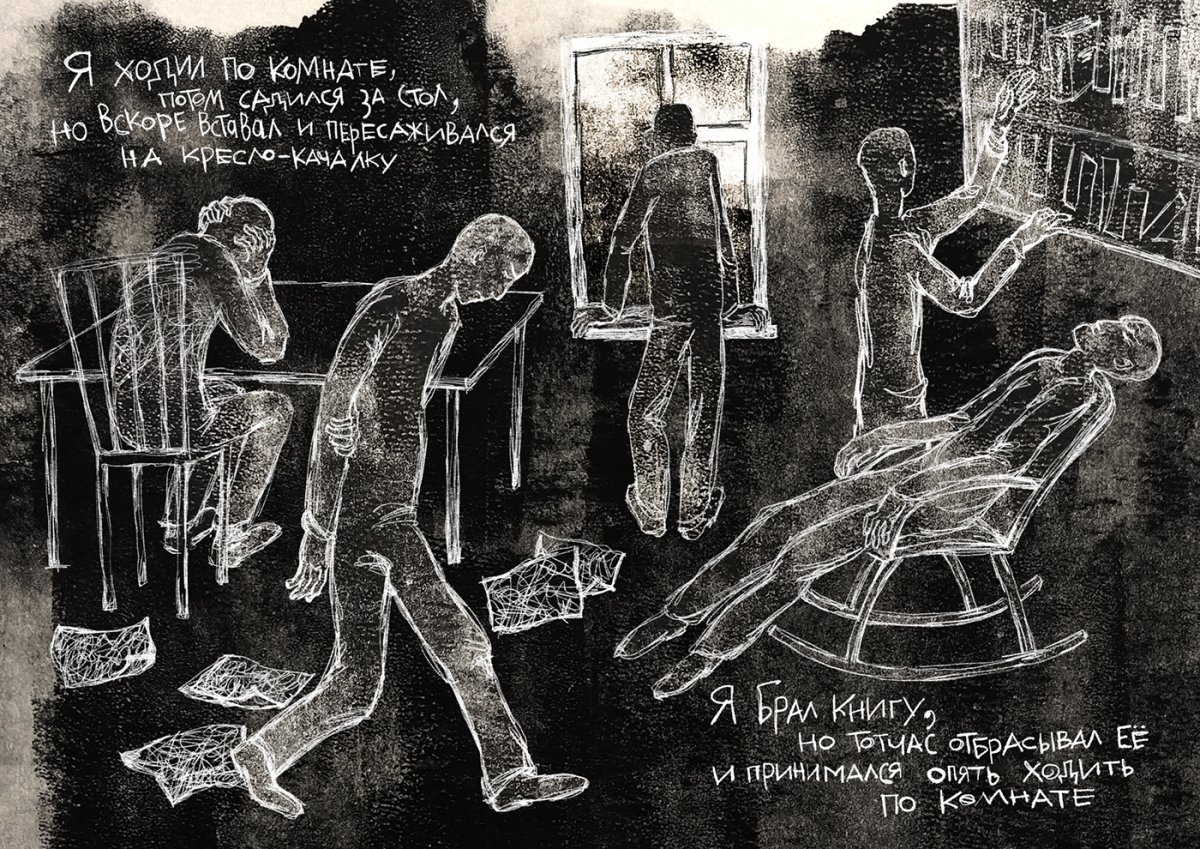 Я ХОДИЛ ПО КОМНАТЕ,
ПОТОМ САДИЛСЯ ЗА СТОЛ,
НО ВСКОРЕ ВСТАВАЛ И ПЕРЕСАЖИВАЛСЯ
НА КРЕСЛО-КАЧАЛКУ
Я БРАЛ КНИГУ,
НО ТОТЧАС ОТБРАСЫВАЛ ЕЁ
И ПРИНИМАЛСЯ ОПЯТЬ ХОДИТЬ
ПО КОМНАТЕ